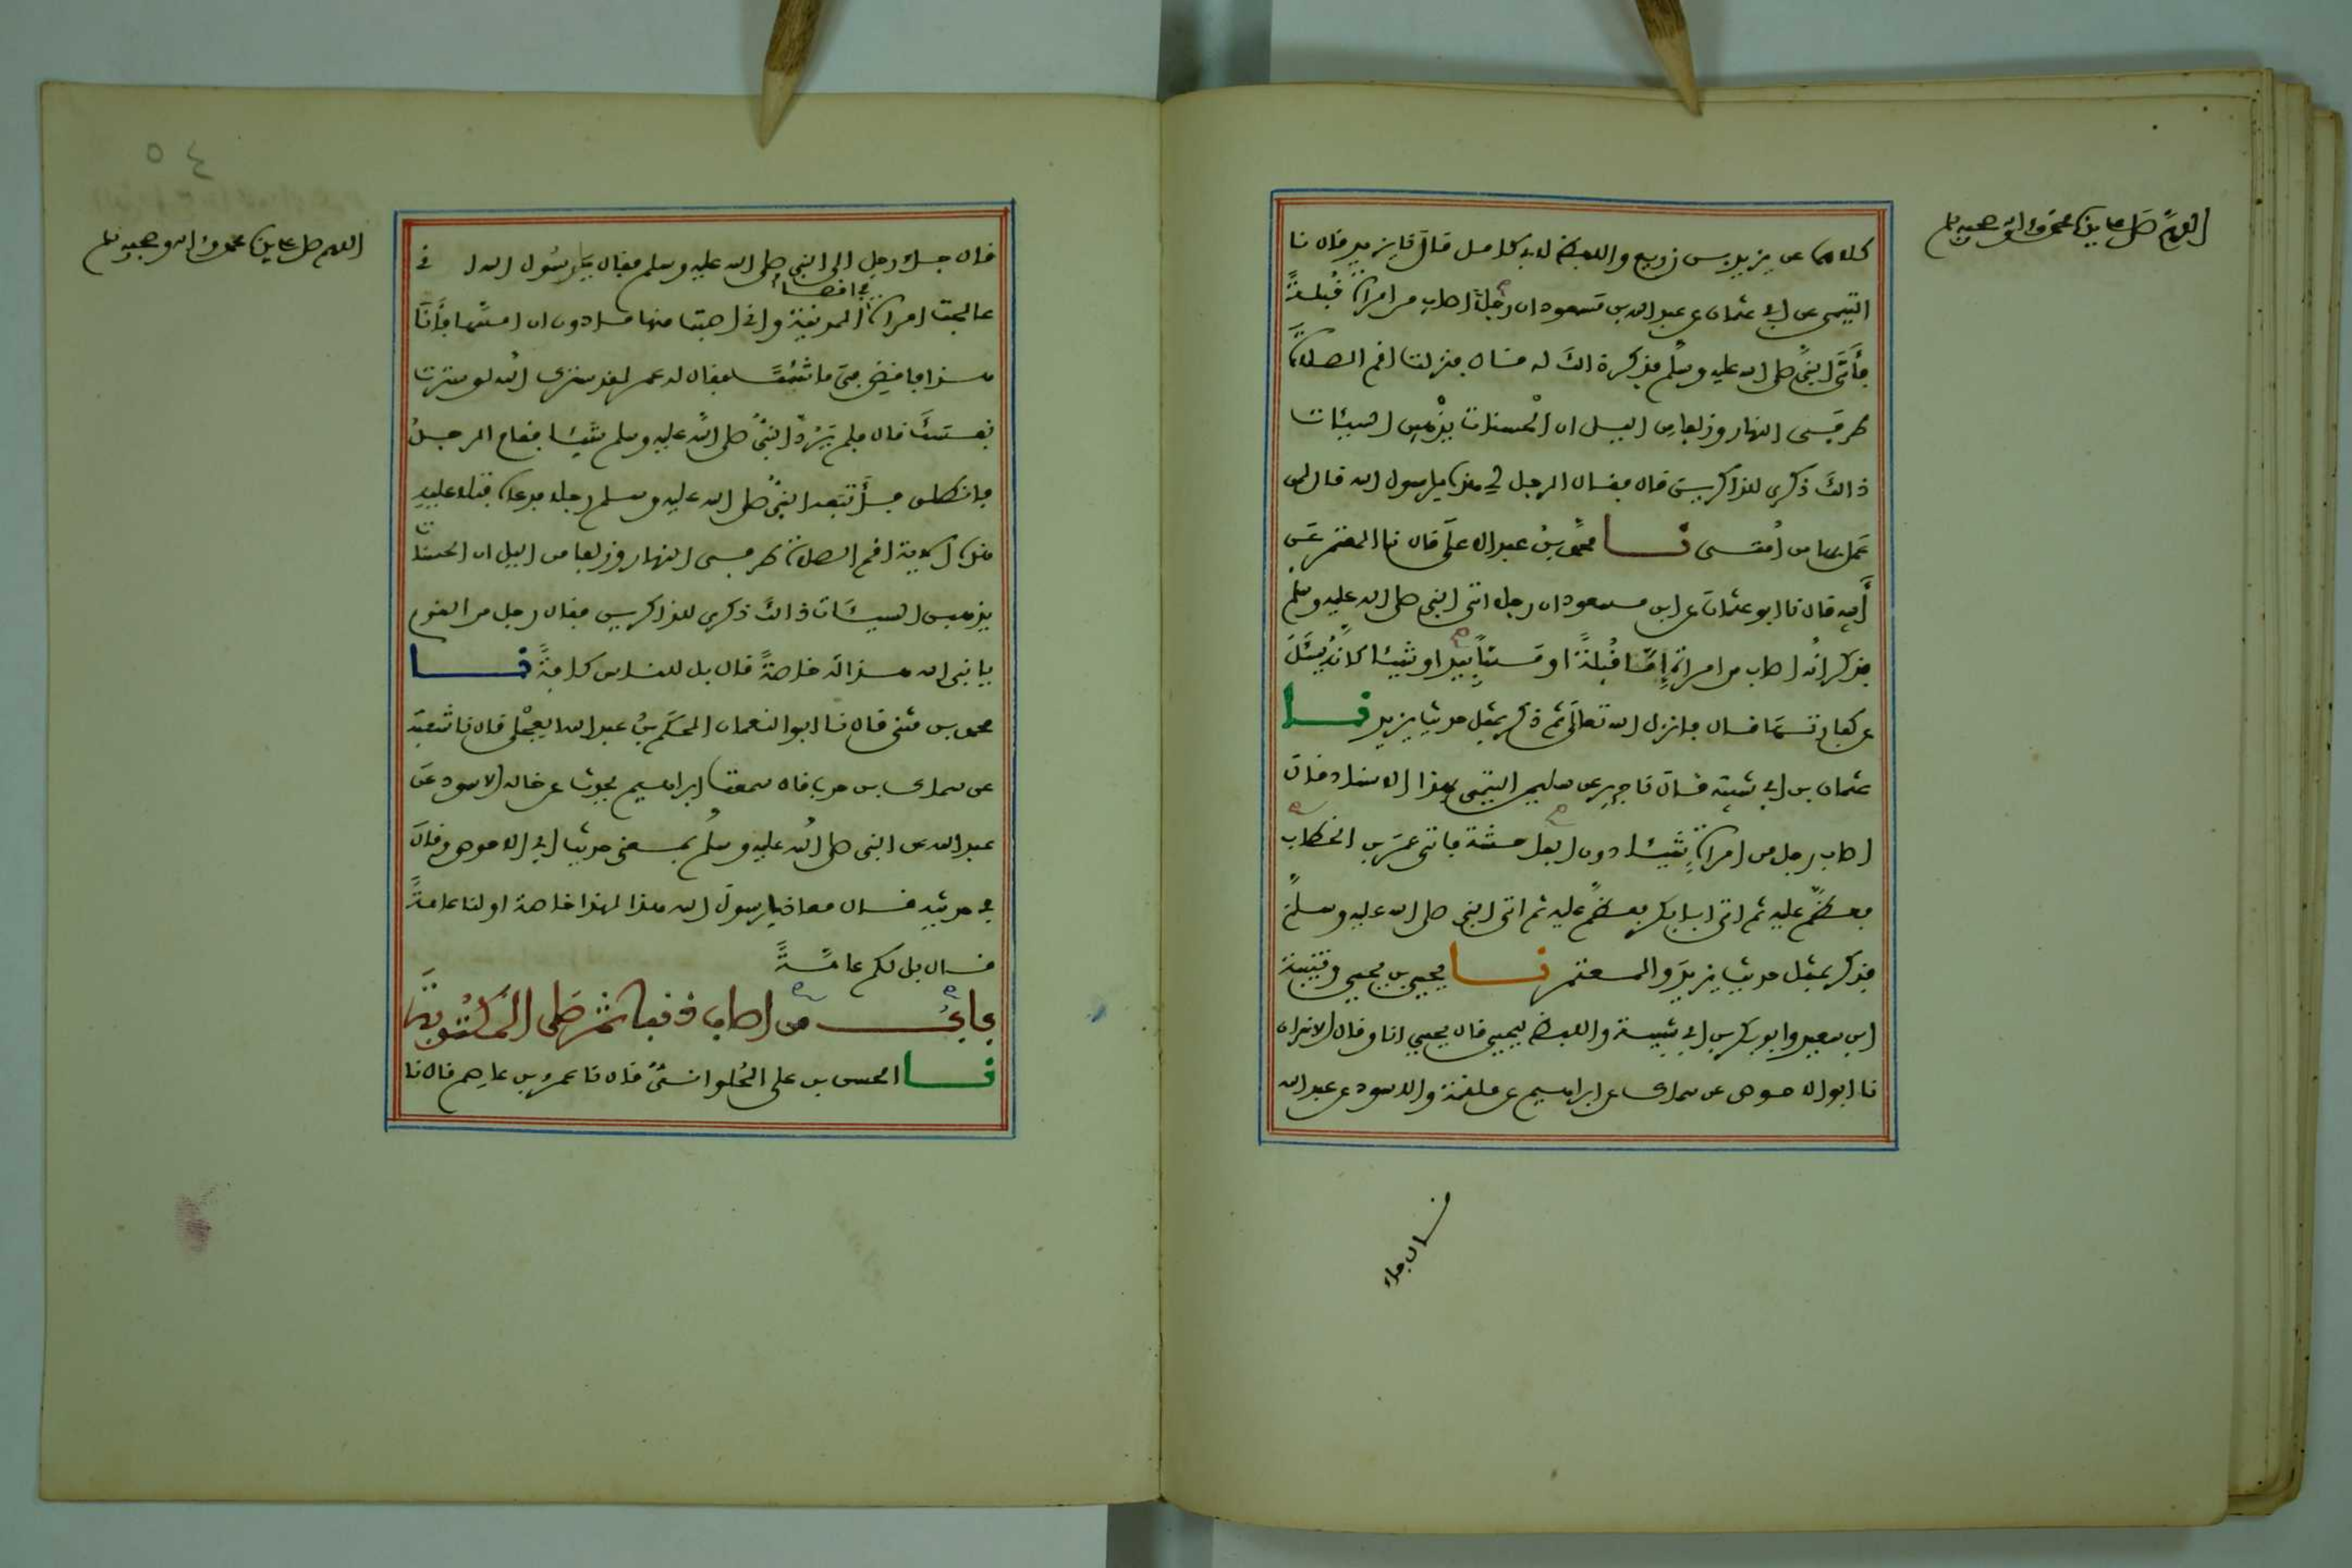 اللهم صل على سيدنا محمد وءاله وصحبه وسلم
كلاهما عن يزيد بن زريع واللفظ لابي كامل قال نا يزيد قال نا
التيمي عن ابي عثمان عن عبد الله بن مسعود ان رجلا اصاب من امراة قُبلةً
فأتى النبي صلى الله عليه وسلم فذكر ذالك له قال فنزلت اقم الصلاة
طرفي النهار وزلفا من اليل ان الحسنات يذهبن السيئات
ذالك ذكرى للذاكرين قال فقال الرجل الي هذا يا رسول الله قال لمن
عمل بها من امتي نا محمد بن عبد الاعلى قال نا المعتمر عن
أبيه قال نا ابو عثمان عن ابن مسعود ان رجلا اتى النبي صلى الله عليه وسلم
فذكر انه اصاب من امراة إمّا قُبلةً او مسّاً بيد او شيئا كانه يسئل
عن كفارتها قال فانزل الله تعالى ثم ذكر بمثل حديث يزيد نا
عثمان بن ابي شيبة قال نا جرير عن سليمن التيمي بهذا الاسناد قال
اصاب رجل من امراة شيئا دون الفاحشة فاتى عمر بن الخطاب
فعظم عليه ثم اتى ابا بكر فعظم عليه ثم اتى النبي صلى الله عليه وسلم
فذكر بمثل حديث يزيد والمعتمر نا يحيى بن يحيى وقتيبة
ابن سعيد وابو بكر بن ابي شيبة واللفظ ليحيى قال يحيى انا وقال الاخران
نا ابو الاحوص عن سماك عن ابراهيم عن علقمة والاسود عن عبد الله
قال جاء
٥٤
اللهم صل على سيدنا محمد وءاله وصحبه وسلم
قال جاء رجل الى النبي صلى الله عليه وسلم فقال يا رسول الله اني
في اقصا
عالجت امراة المدينة واني اصبت منها ما دون ان امسها فأنا
هذا فاقض في ما شئت فقال له عمر لقد سترك الله لو سترت
نفسك قال فلم يرد النبي صلى الله عليه وسلم شيئا فقام الرجل
فانطلق فأتبعه النبي صلى الله عليه وسلم رجلا فدعاه فتلا عليه
هذه الاية اقم الصلاة طرفي النهار وزلفا من اليل ان الحسنات
يذهبن السيئات ذالك ذكرى للذاكرين فقال رجل من القوم
يا نبي الله هذا له خاصةً قال بل للناس كافةً نا
محمد بن مثنى قال نا ابو النعمان الحكم بن عبد الله العجلي قال نا شعبة
عن سماك بن حرب قال سمعت ابراهيم يحدث عن خاله الاسود عن
عبد الله عن النبي صلى الله عليه وسلم بمعنى حديث ابي الاحوص وقال
في حديثه فقال معاذ يا رسول الله هذا لهذا خاصة او لنا عامةً
قال بل لكم عامةً
باب من اصاب ذنبا ثم صلى المكتوبة
نا الحسن بن علي الحلواني قال نا عمرو بن عاصم قال نا